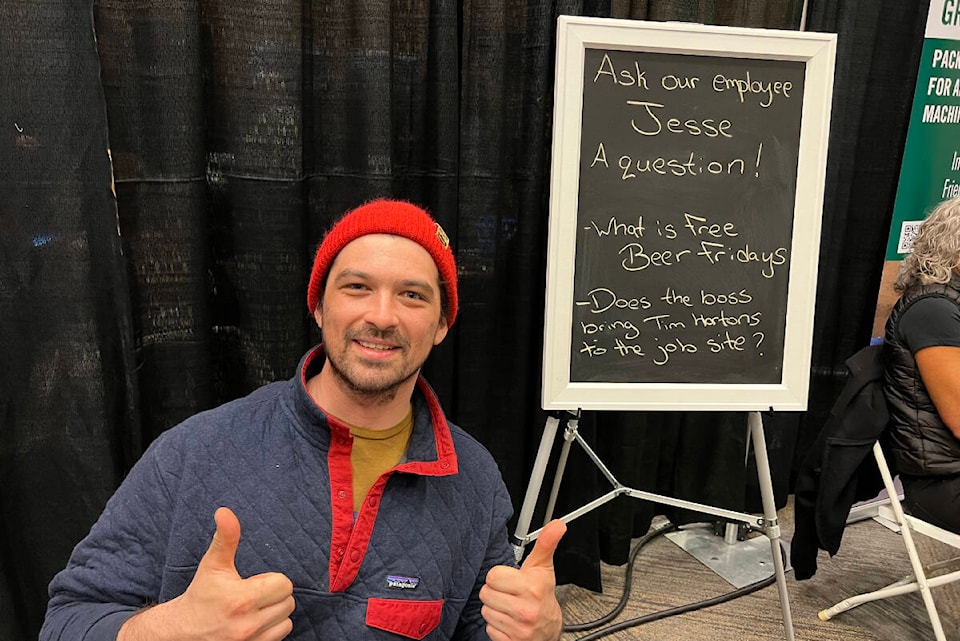 Ask our employee
Jesse
A question!
-What is Free
Beer Fridays
-Does the boss
bring Tim Hortons
to the job site?
patagonia
PACK
FOR A
MACHIN
In
Frie